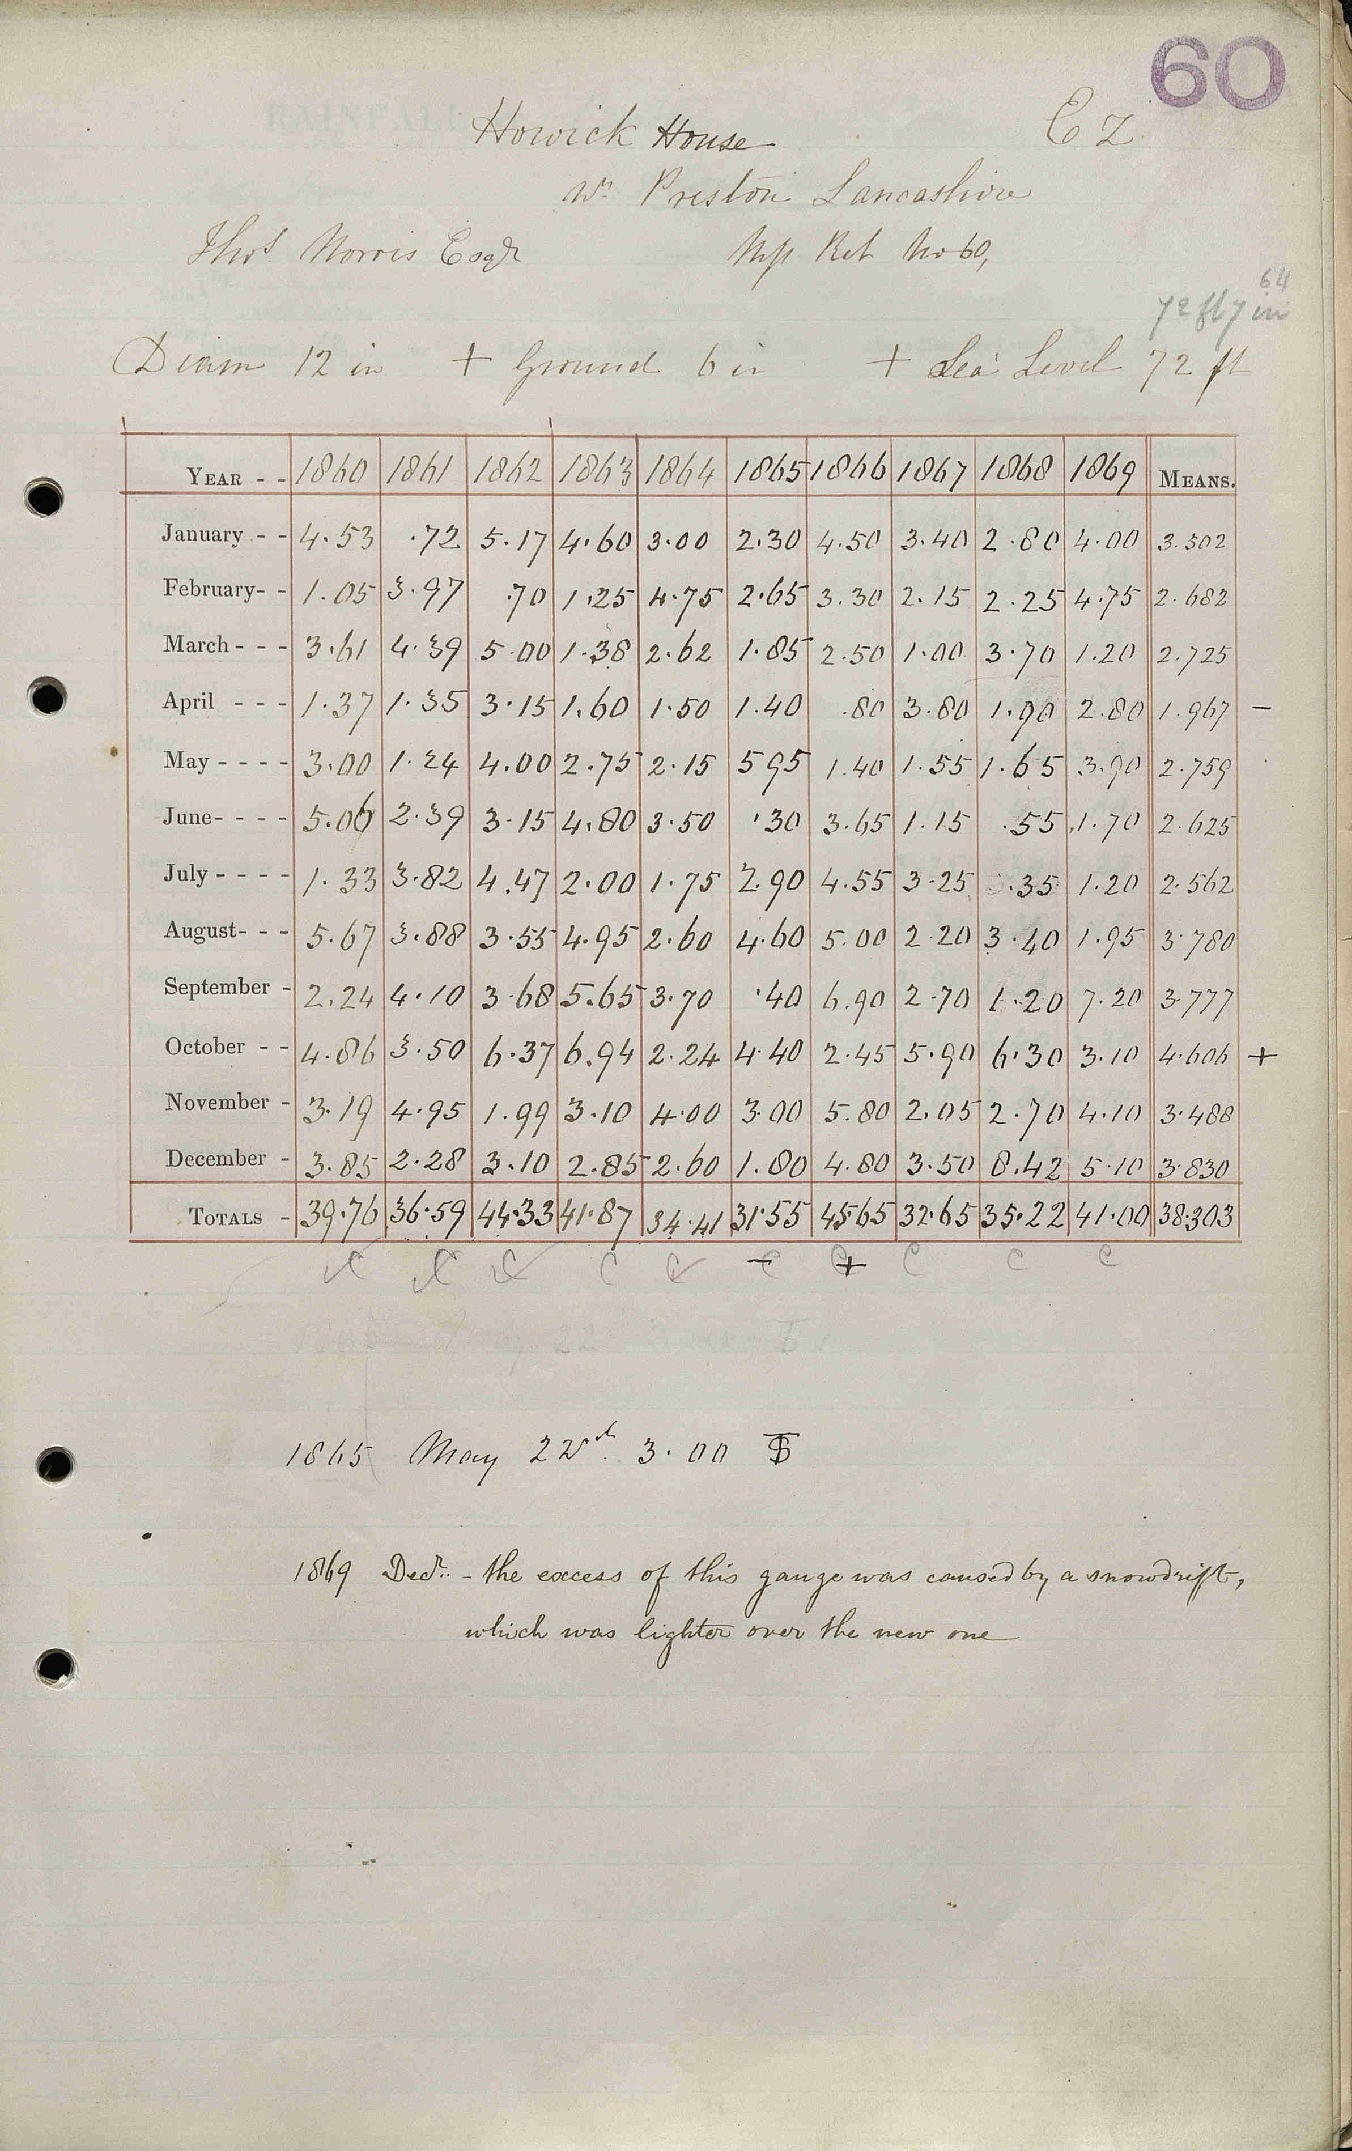 60
Howick House
C Z
Nr Preston Lancashire
Thos Norris Esqr
Mp Ret No 60,
64
72 ft 7 in
Diam 12 in + Ground 6 in + Sea Level 72 ft
YEAR - - 1860 1861 1862 1863 1864 1865 1866 1867 1868 1869 MEANS.
January - - 4.53 .72 5.17 4.60 3.00 2.30 4.50 3.40 2.80 4.00 3.502
February - - 1.05 3.97 .70 1.25 4.75 2.65 3.30 2.15 2.25 4.75 2.682
March - - - 3.61 4.39 5.00 1.38 2.62 1.85 2.50 1.00 3.70 1.20 2.725
April - - - 1.37 1.35 3.15 1.60 1.50 1.40 .80 3.80 1.90 2.80 1.967 -
May - - - - 3.00 1.24 4.00 2.75 2.15 5 95 1.40 1.55 1.65 3.90 2.759
June - - - - 5.06 2.39 3.15 4.80 3.50 .30 3.65 1.15 .55 1.70 2.625
July - - - - 1.33 3.82 4.47 2.00 1.75 2.90 4.55 3.25 .35 1.20 2.562
August - - - 5.67 3.88 3.55 4.95 2.60 4.60 5.00 2.20 3.40 1.95 3.780
September - 2.24 4.10 3.68 5.65 3.70 .40 6.90 2.70 1.20 7.20 3.777
October - - 4.86 3.50 6.37 6.94 2.24 4.40 2.45 5.90 6.30 3.10 4.606 +
November - 3.19 4.95 1.99 3.10 4.00 3.00 5.80 2.05 2.70 4.10 3.488
December - 3.85 2.28 3.10 2.85 2.60 1.80 4.80 3.50 8.42 5.10 3.830
TOTALS - 39.76 36.59 44.33 41.87 34.41 31.55 45.65 32.65 35.22 41.00 38.303
C C C C C - C + C C C C
1865 May 22nd. 3.00
1869 Decr. - the excess of this gauge was caused by a snowdrift,
which was lighter over the new one